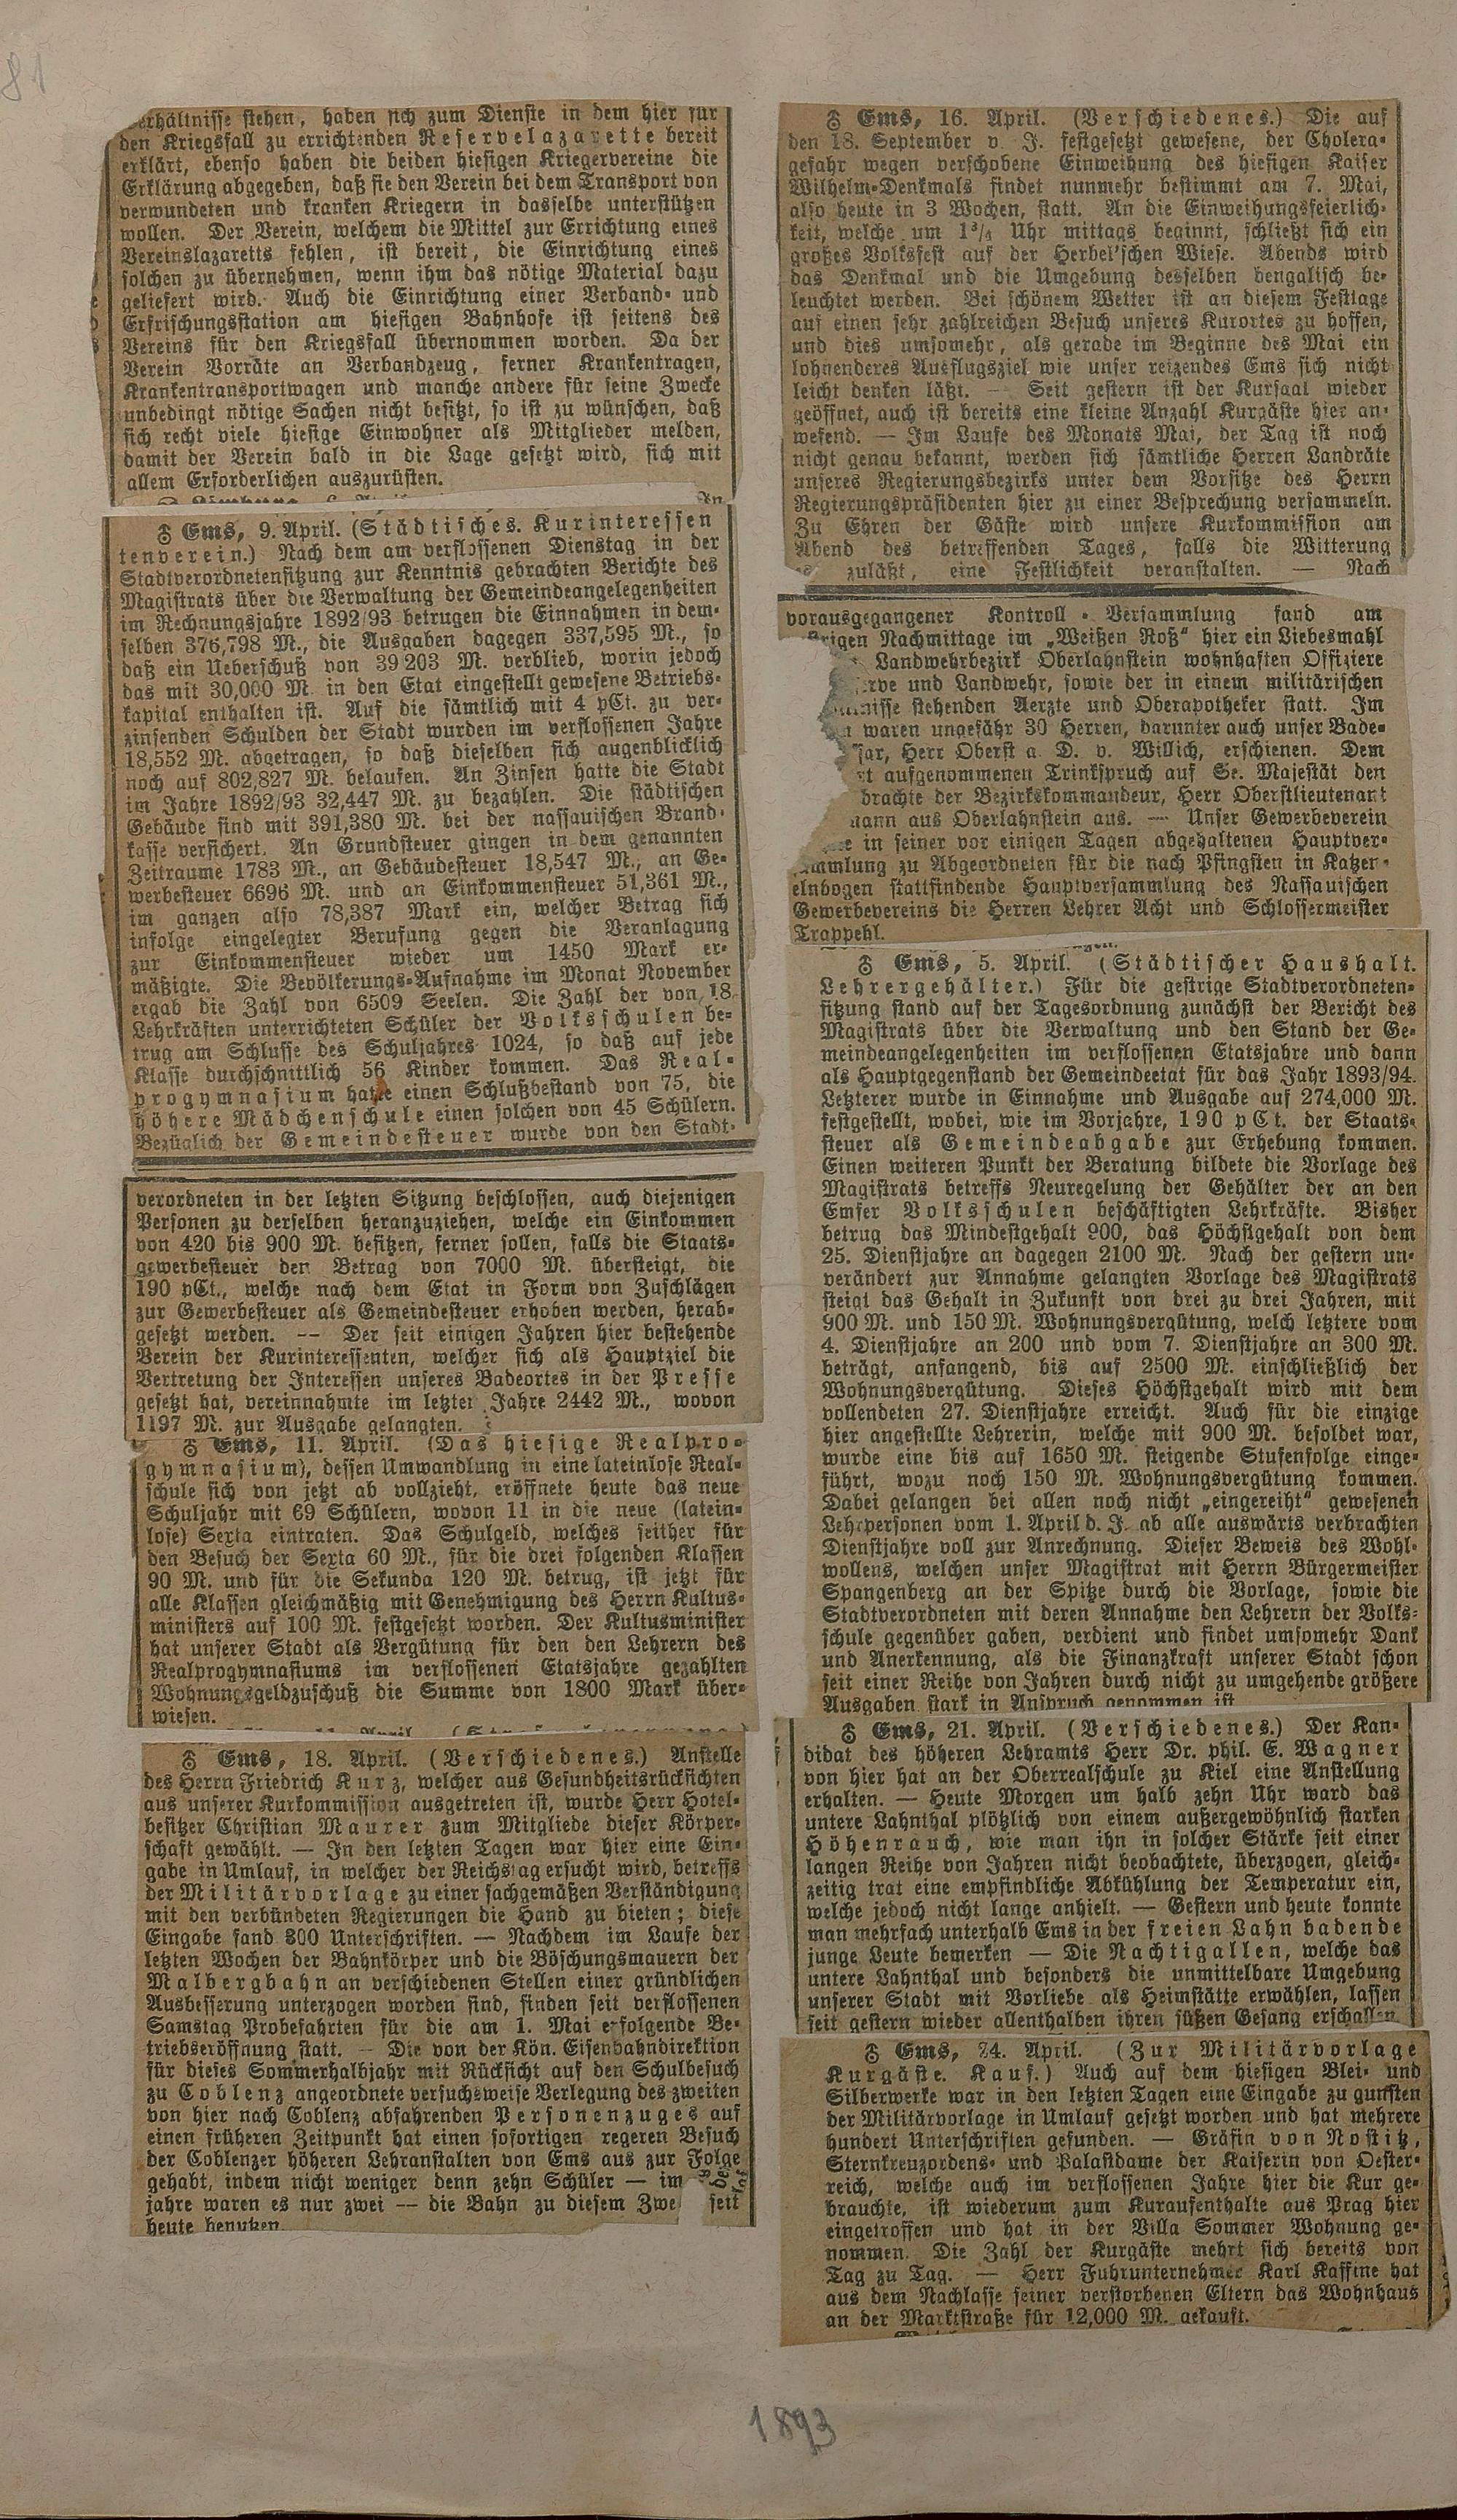 81
erhältnisse stehen, haben sich zum Dienste in dem hier für
den Kriegsfall zu errichtenden Reservelazarette bereit
erklärt, ebenso haben die beiden hiesigen Kriegervereine die
Erklärung abgegeben, daß sie den Verein bei dem Transport von
verwundeten und kranken Kriegern in dasselbe unterstützen
wollen. Der Verein, welchem die Mittel zur Errichtung eines
Vereinslazaretts fehlen, ist bereit, die Einrichtung eines
solchen zu übernehmen, wenn ihm das nötige Material dazu
geliefert wird. Auch die Einrichtung einer Verband- und
Erfrischungsstation am hiesigen Bahnhofe ist seitens des
Vereins für den Kriegsfall übernommen worden. Da der
Verein Vorräte an Verbandzeug, ferner Krankentragen,
Krankentransportwagen und manche andere für seine Zwecke
unbedingt nötige Sachen nicht besitzt, so ist zu wünschen, daß
sich recht viele hiesige Einwohner als Mitglieder melden,
damit der Verein bald in die Lage gesetzt wird, sich mit
allem Erforderlichen auszurüsten.
Ems, 9. April. (Städtisches. Kurinteressen
tenverein.) Nach dem am verflossenen Dienstag in der
Stadtverordnetensitzung zur Kenntnis gebrachten Berichte des
Magistrats über die Verwaltung der Gemeindeangelegenheiten
im Rechnungsjahre 1892/93 betrugen die Einnahmen in dem-
selben 376,798 M., die Ausgaben dagegen 337,595 M., so
daß ein Ueberschuß von 39 203 M. verblieb, worin jedoch
das mit 30,000 M. in den Etat eingestellt gewesene Betriebs-
kapital enthalten ist. Auf die sämtlich mit 4 pCt. zu ver-
zinsenden Schulden der Stadt wurden im verflossenen Jahre
18,552 M. abgetragen, so daß dieselben sich augenblicklich
noch auf 802,827 M. belaufen. An Zinsen hatte die Stadt
im Jahre 1892/93 32,447 M. zu bezahlen. Die städtischen
Gebäude sind mit 391,380 M. bei der nassauischen Brand-
kasse versichert. An Grundsteuer gingen in dem genannten
Zeitraume 1783 M., an Gebäudesteuer 18,547 M., an Ge-
werbesteuer 6696 M. und an Einkommensteuer 51,361 M.,
im ganzen also 78,387 Mark ein, welcher Betrag sich
infolge eingelegter Berufung gegen die Veranlagung
zur Einkommensteuer wieder um 1450 Mark er-
mäßigte. Die Bevölkerungs-Aufnahme im Monat November
ergab die Zahl von 6509 Seelen. Die Zahl der von 18
Lehrkräften unterrichteten Schüler der Volksschulen be-
trug am Schlusse des Schuljahres 1024, so daß auf jede
Klasse durchschnittlich 56 Kinder kommen. Das Real-
progymnasium hatte einen Schlußbestand von 75, die
höhere Mädchenschule einen solchen von 45 Schülern.
Bezüglich der Gemeindesteuer wurde von den Stadt-
verordneten in der letzten Sitzung beschlossen, auch diejenigen
Personen zu derselben heranzuziehen, welche ein Einkommen
von 420 bis 900 M. besitzen, ferner sollen, falls die Staats-
gewerbesteuer den Betrag von 7000 M. übersteigt, die
190 pCt., welche nach dem Etat in Form von Zuschlägen
zur Gewerbesteuer als Gemeindesteuer erhoben werden, herab-
gesetzt werden. -- Der seit einigen Jahren hier bestehende
Verein der Kurinteressenten, welcher sich als Hauptziel die
Vertretung der Interessen unseres Badeortes in der Presse
gesetzt hat, vereinnahmte im letzten Jahre 2442 M., wovon
1197 M. zur Ausgabe gelangten.
Ems, 11. April. (Das hiesige Realpro-
gymnasium), dessen Umwandlung in eine lateinlose Real-
schule sich von jetzt ab vollzieht, eröffnete heute das neue
Schuljahr mit 69 Schülern, wovon 11 in die neue (latein-
lose) Sexta eintraten. Das Schulgeld, welches seither für
den Besuch der Sexta 60 M., für die drei folgenden Klassen
90 M. und für die Sekunda 120 M. betrug, ist jetzt für
alle Klassen gleichmäßig mit Genehmigung des Herrn Kultus-
ministers auf 100 M. festgesetzt worden. Der Kultusminister
hat unserer Stadt als Vergütung für den den Lehrern des
Realprogymnasiums im verflossenen Etatsjahre gezahlten
Wohnungsgeldzuschuß die Summe von 1800 Mark über-
wiesen.
Ems, 18. April. (Verschiedenes.) Anstelle
des Herrn Friedrich Kurz, welcher aus Gesundheitsrücksichten
aus unserer Kurkommission ausgetreten ist, wurde Herr Hotel-
besitzer Christian Maurer zum Mitgliede dieser Körper-
schaft gewählt. — In den letzten Tagen war hier eine Ein-
gabe in Umlauf, in welcher der Reichstag ersucht wird, betreffs
der Militärvorlage zu einer sachgemäßen Verständigung
mit den verbündeten Regierungen die Hand zu bieten; diese
Eingabe fand 300 Unterschriften. — Nachdem im Laufe der
letzten Wochen der Bahnkörper und die Böschungsmauern der
Malbergbahn an verschiedenen Stellen einer gründlichen
Ausbesserung unterzogen worden sind, finden seit verflossenen
Samstag Probefahrten für die am 1. Mai erfolgende Be-
triebseröffnung statt. — Die von der Kön. Eisenbahndirektion
für dieses Sommerhalbjahr mit Rücksicht auf den Schulbesuch
zu Coblenz angeordnete versuchsweise Verlegung des zweiten
von hier nach Coblenz abfahrenden Personenzuges auf
einen früheren Zeitpunkt hat einen sofortigen regeren Besuch
der Coblenzer höheren Lehranstalten von Ems aus zur Folge
gehabt, indem nicht weniger denn zehn Schüler — im
jahre waren es nur zwei -- die Bahn zu diesem Zwe seit
heute benutzen.
Ems, 16. April. (Verschiedenes.) Die auf
den 18. September v. J. festgesetzt gewesene, der Cholera-
gefahr wegen verschobene Einweihung des hiesigen Kaiser
Wilhelm-Denkmals findet nunmehr bestimmt am 7. Mai,
also heute in 3 Wochen, statt. An die Einweihungsfeierlich-
keit, welche um 1³/₄ Uhr mittags beginnt, schließt sich ein
großes Volksfest auf der Herbel'schen Wiese. Abends wird
das Denkmal und die Umgebung desselben bengalisch be-
leuchtet werden. Bei schönem Wetter ist an diesem Festtage
auf einen sehr zahlreichen Besuch unseres Kurortes zu hoffen,
und dies umsomehr, als gerade im Beginne des Mai ein
lohnenderes Ausflugsziel wie unser reizendes Ems sich nicht
leicht denken läßt. — Seit gestern ist der Kursaal wieder
geöffnet, auch ist bereits eine kleine Anzahl Kurgäste hier an-
wesend. — Im Laufe des Monats Mai, der Tag ist noch
nicht genau bekannt, werden sich sämtliche Herren Landräte
unseres Regierungsbezirks unter dem Vorsitze des Herrn
Regierungspräsidenten hier zu einer Besprechung versammeln.
Zu Ehren der Gäste wird unsere Kurkommission am
Abend des betreffenden Tages, falls die Witterung
es zuläßt, eine Festlichkeit veranstalten. — Nach
vorausgegangener Kontroll-Versammlung fand am
rigen Nachmittage im „Weißen Roß" hier ein Liebesmahl
Landwehrbezirk Oberlahnstein wohnhaften Offiziere
rve und Landwehr, sowie der in einem militärischen
nisse stehenden Aerzte und Oberapotheker statt. Im
waren ungefähr 30 Herren, darunter auch unser Bade-
sar, Herr Oberst a. D. v. Willich, erschienen. Dem
t aufgenommenen Trinkspruch auf Se. Majestät den
brachte der Bezirkskommandeur, Herr Oberstlieutenant
mann aus Oberlahnstein aus. — Unser Gewerbeverein
e in seiner vor einigen Tagen abgehaltenen Hauptver-
mmlung zu Abgeordneten für die nach Pfingsten in Katzen-
elnbogen stattfindende Hauptversammlung des Nassauischen
Gewerbevereins die Herren Lehrer Acht und Schlossermeister
Trappehl.
Ems, 5. April. (Städtischer Haushalt.
Lehrergehälter.) Für die gestrige Stadtverordneten-
sitzung stand auf der Tagesordnung zunächst der Bericht des
Magistrats über die Verwaltung und den Stand der Ge-
meindeangelegenheiten im verflossenen Etatsjahre und dann
als Hauptgegenstand der Gemeindeetat für das Jahr 1893/94.
Letzterer wurde in Einnahme und Ausgabe auf 274,000 M.
festgestellt, wobei, wie im Vorjahre, 190 pCt. der Staats-
steuer als Gemeindeabgabe zur Erhebung kommen.
Einen weiteren Punkt der Beratung bildete die Vorlage des
Magistrats betreffs Neuregelung der Gehälter der an den
Emser Volksschulen beschäftigten Lehrkräfte. Bisher
betrug das Mindestgehalt 900, das Höchstgehalt von dem
25. Dienstjahre an dagegen 2100 M. Nach der gestern un-
verändert zur Annahme gelangten Vorlage des Magistrats
steigt das Gehalt in Zukunft von drei zu drei Jahren, mit
900 M. und 150 M. Wohnungsvergütung, welch letztere vom
4. Dienstjahre an 200 und vom 7. Dienstjahre an 300 M.
beträgt, anfangend, bis auf 2500 M. einschließlich der
Wohnungsvergütung. Dieses Höchstgehalt wird mit dem
vollendeten 27. Dienstjahre erreicht. Auch für die einzige
hier angestellte Lehrerin, welche mit 900 M. besoldet war,
wurde eine bis auf 1650 M. steigende Stufenfolge einge-
führt, wozu noch 150 M. Wohnungsvergütung kommen.
Dabei gelangen bei allen noch nicht „eingereiht" gewesenen
Lehrpersonen vom 1. April d. J. ab alle auswärts verbrachten
Dienstjahre voll zur Anrechnung. Dieser Beweis des Wohl-
wollens, welchen unser Magistrat mit Herrn Bürgermeister
Spangenberg an der Spitze durch die Vorlage, sowie die
Stadtverordneten mit deren Annahme den Lehrern der Volks-
schule gegenüber gaben, verdient und findet umsomehr Dank
und Anerkennung, als die Finanzkraft unserer Stadt schon
seit einer Reihe von Jahren durch nicht zu umgehende größere
Ausgaben stark in Anspruch genommen ist
Ems, 21. April. (Verschiedenes.) Der Kan-
didat des höheren Lehramts Herr Dr. phil. E. Wagner
von hier hat an der Oberrealschule zu Kiel eine Anstellung
erhalten. — Heute Morgen um halb zehn Uhr ward das
untere Lahnthal plötzlich von einem außergewöhnlich starken
Höhenrauch, wie man ihn in solcher Stärke seit einer
langen Reihe von Jahren nicht beobachtete, überzogen, gleich-
zeitig trat eine empfindliche Abkühlung der Temperatur ein,
welche jedoch nicht lange anhielt. — Gestern und heute konnte
man mehrfach unterhalb Ems in der freien Lahn badende
junge Leute bemerken — Die Nachtigallen, welche das
untere Lahnthal und besonders die unmittelbare Umgebung
unserer Stadt mit Vorliebe als Heimstätte erwählen, lassen
seit gestern wieder allenthalben ihren süßen Gesang erschallen
Ems, 24. April. (Zur Militärvorlage
Kurgäste. Kauf.) Auch auf dem hiesigen Blei- und
Silberwerke war in den letzten Tagen eine Eingabe zu gunsten
der Militärvorlage in Umlauf gesetzt worden und hat mehrere
hundert Unterschriften gefunden. — Gräfin von Nostitz,
Sternkreuzordens- und Palastdame der Kaiserin von Oester-
reich, welche auch im verflossenen Jahre hier die Kur ge-
brauchte, ist wiederum zum Kuraufenthalte aus Prag hier
eingetroffen und hat in der Villa Sommer Wohnung ge-
nommen. Die Zahl der Kurgäste mehrt sich bereits von
Tag zu Tag. — Herr Fuhrunternehmer Karl Kaffine hat
aus dem Nachlasse seiner verstorbenen Eltern das Wohnhaus
an der Marktstraße für 12,000 M. gekauft.
1893